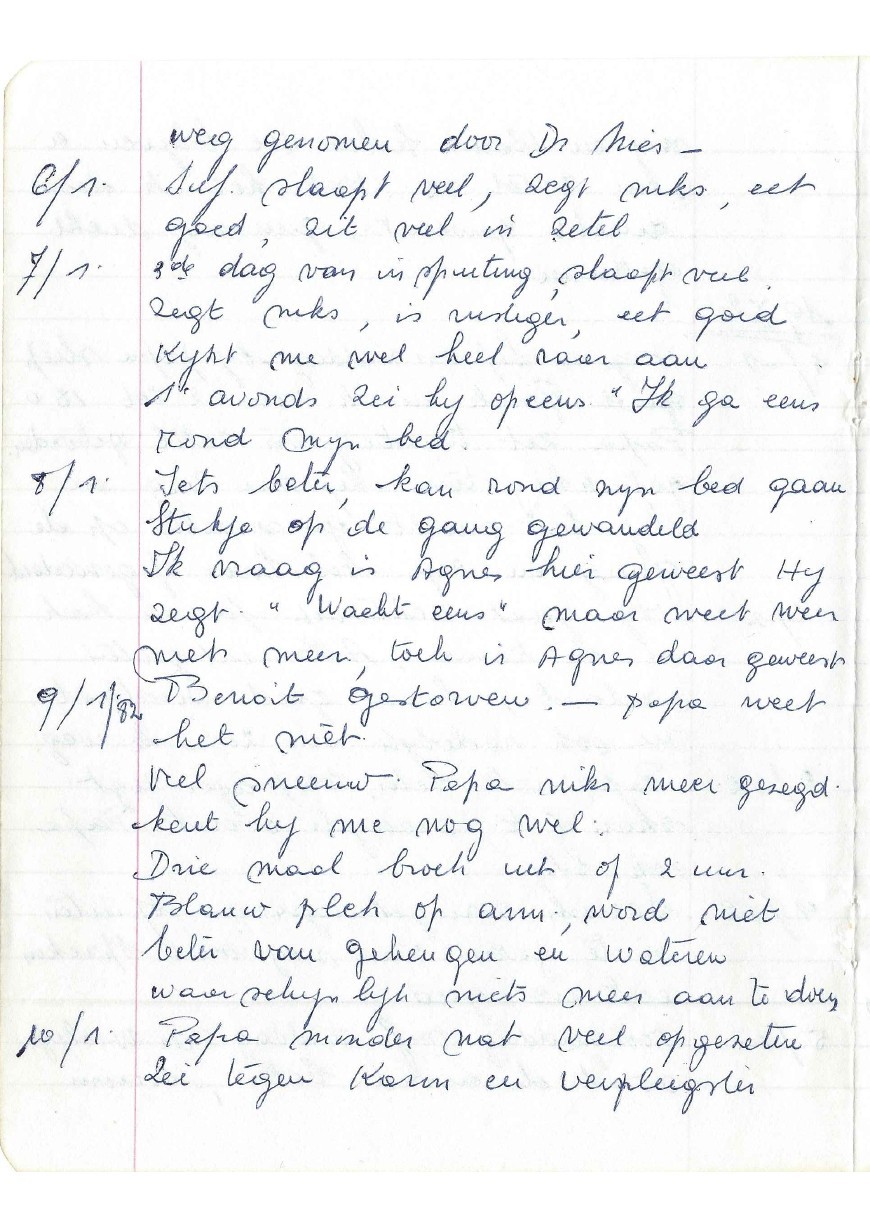 weg genomen door Dr Nies –
6/1. Suf. slaapt veel, zegt niks, eet
goed, zit veel in zetel
7/1. 3de dag van inspuiting, slaapt veel.
zegt niks, is rustiger, eet goed
Kijkt me wel heel raar aan
1" avonds zei hy opeens. "Ik ga eens
rond myn bed
8/1. Iets beter, kan rond myn bed gaan
Stukje op de gang gewandeld
Ik vraag is Agnes hier geweest Hy
zegt. "Wacht eens" maar weet weer
niets meer, toch is Agnes daar geweest
9/1/82 Benoit gestorven. — Papa weet
het niet.
Veel sneeuw. Papa niks meer gezegd.
kent hy me nog wel.
Drie maal broek nat op 2 uur.
Blauw plek op arm, word niet
beter van geheugen en wateren
waarschynlyk niets meer aan te doen
10/1. Papa minder nat veel opgezeten
Zei tegen Karin en verpleegster